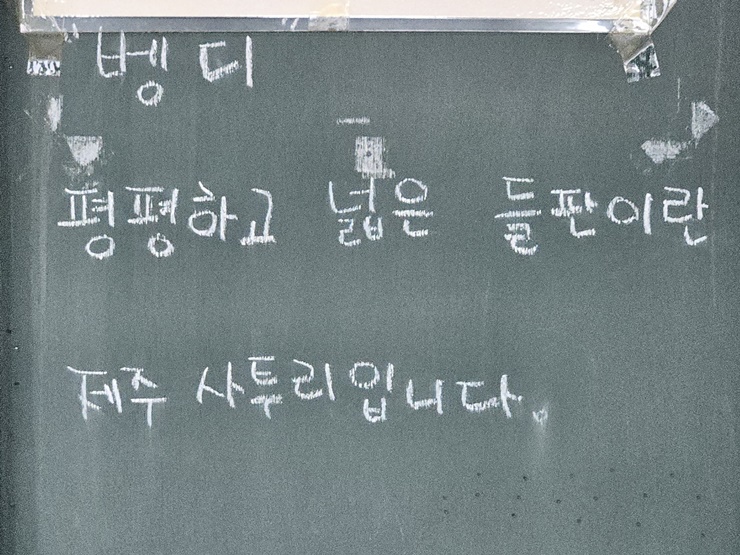 벵디
평평하고 넓은 들판이란
제주 사투리입니다.